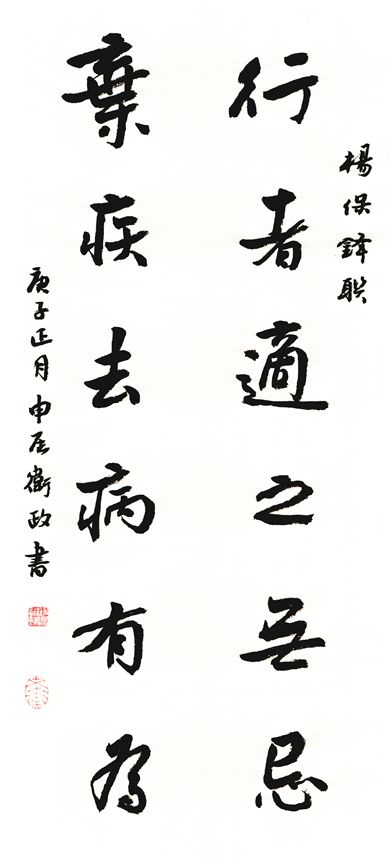 楊保鐸聯
行者適之無忌
棄疾去病有為
庚子正月申衛政書